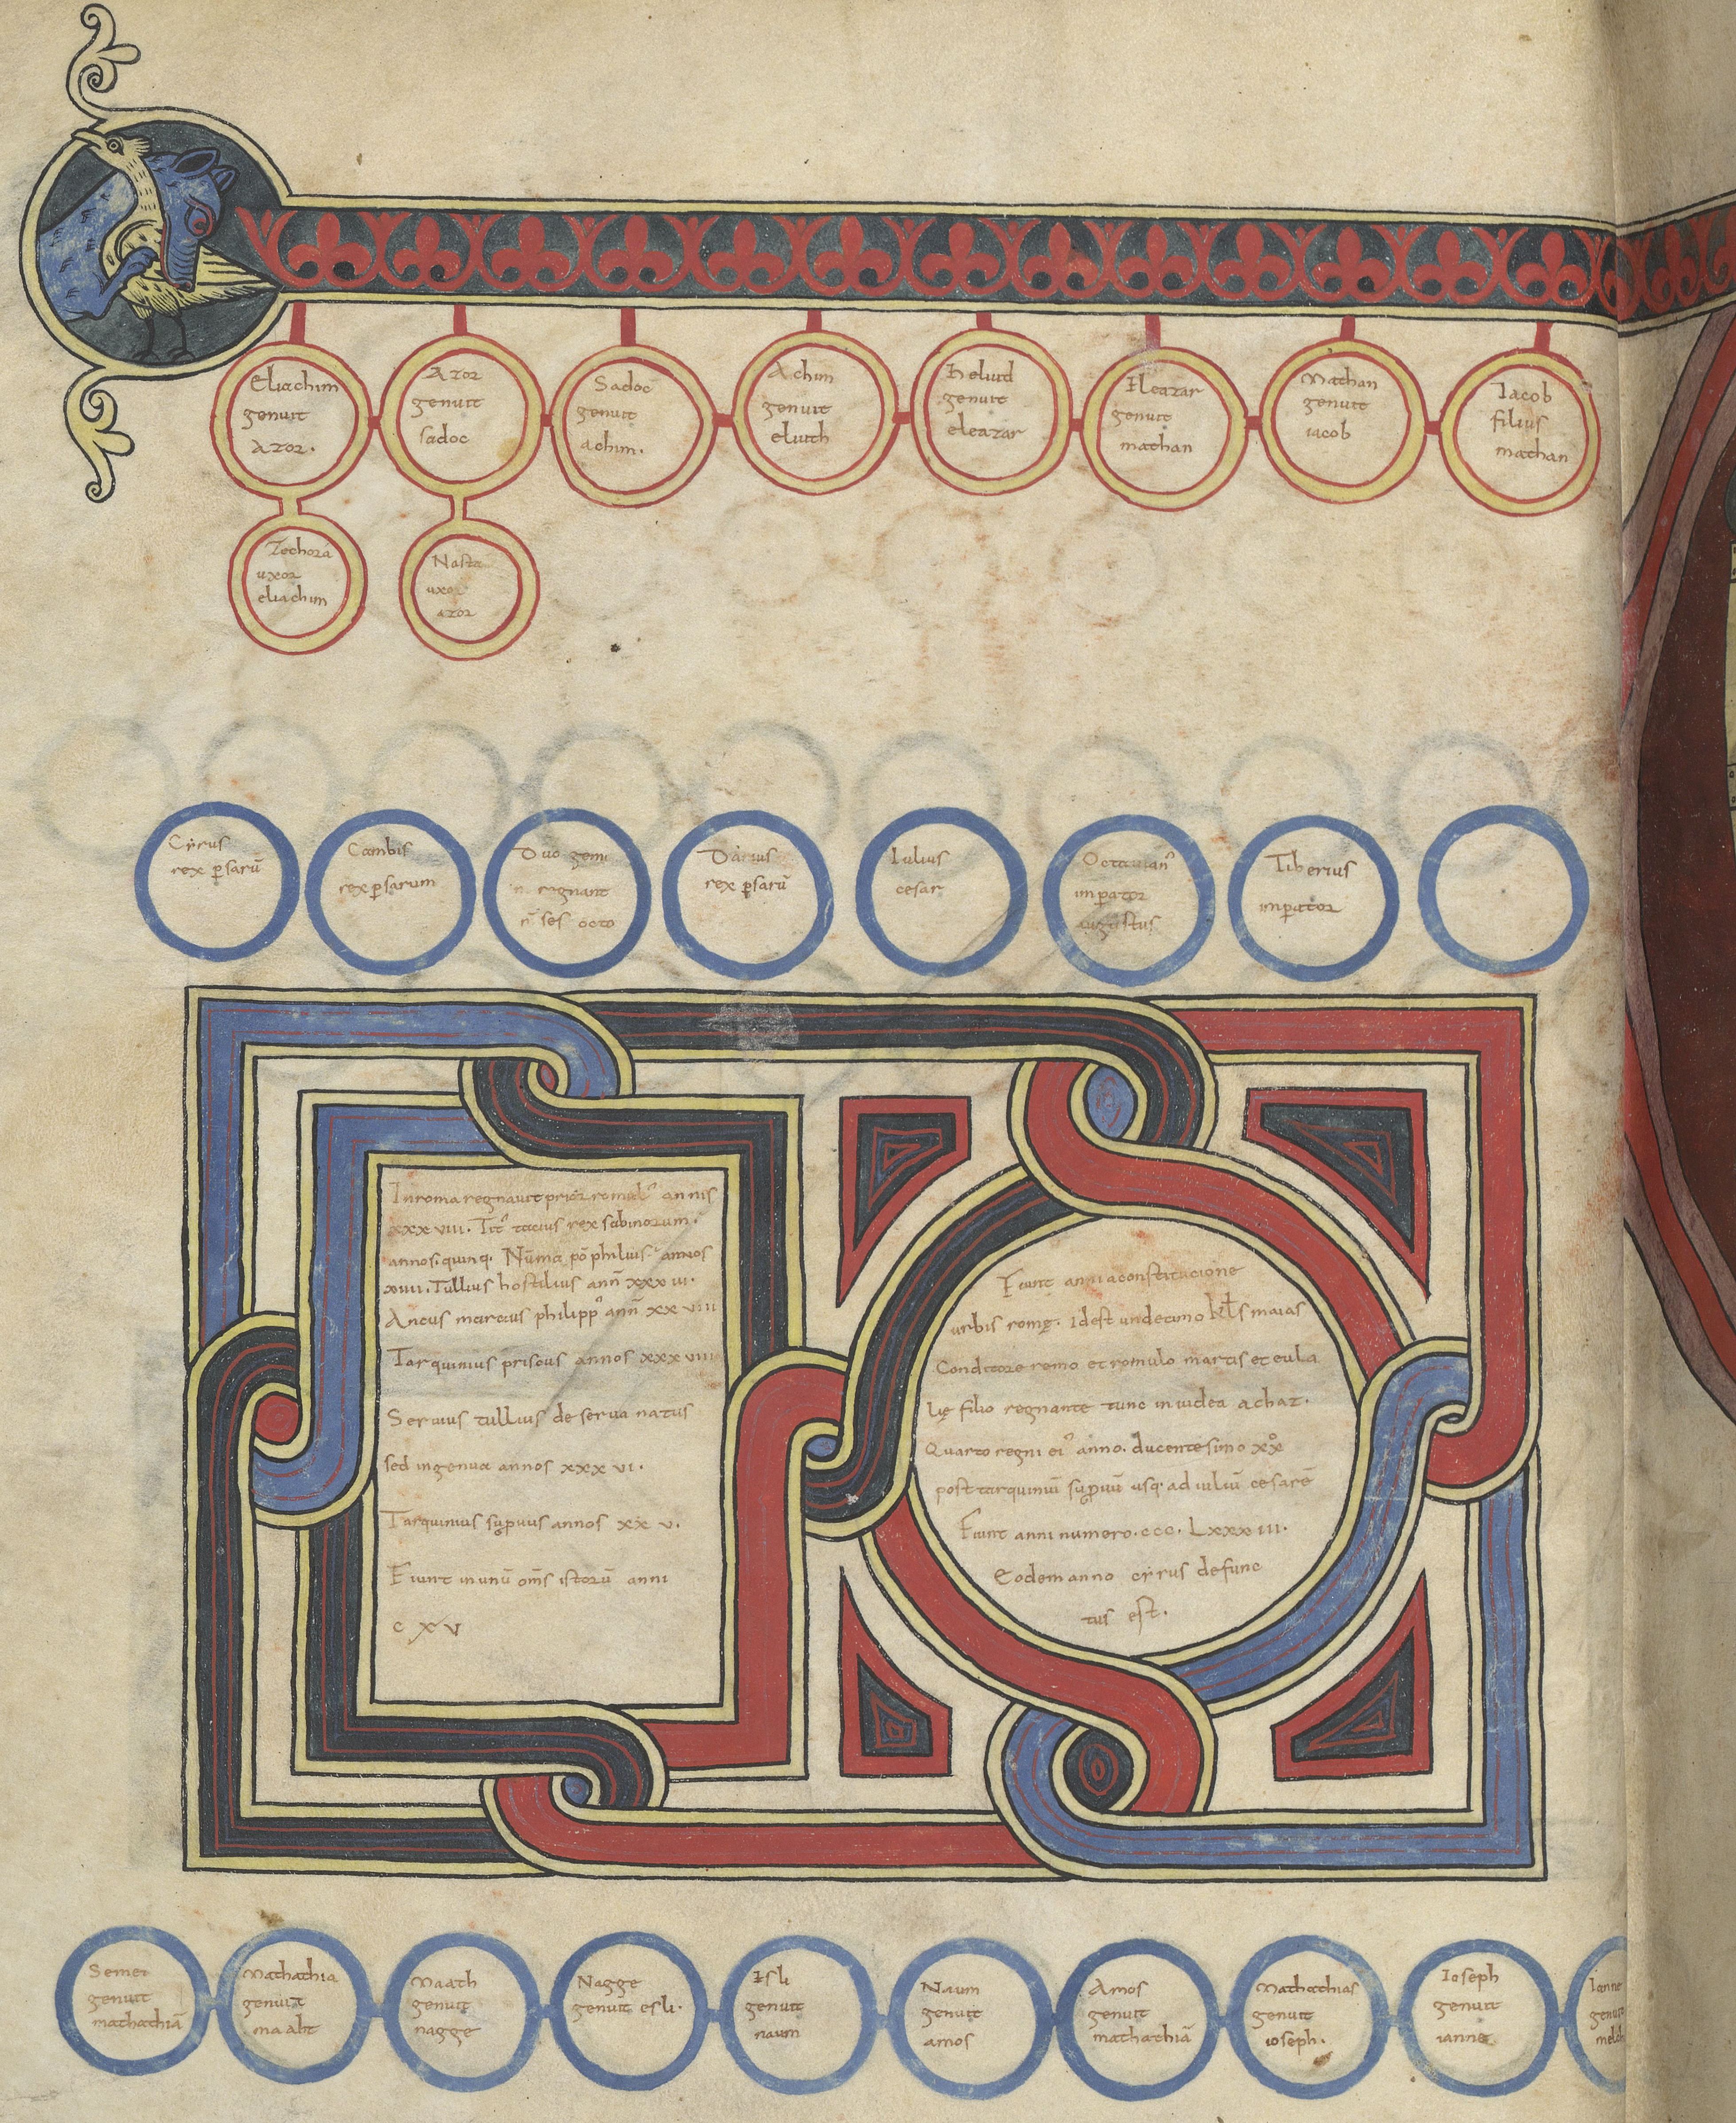 Eliachim
genuit
azor.
Azor
genuit
sadoc
Sadoc
genuit
achim.
Achim
genuit
eliuth
Heliud
genuit
eleazar
Eleazar
genuit
mathan
Mathan
genuit
iacob
Iacob
filius
mathan
Techora
uxor
eliachim
Nasta
uxor
azor
Cyrus
rex psarū
Cambis
rex psarum
Duo gemi
regnant
ses octo
Darius
rex psarū
Iulius
cesar
Octauian⁹
impator
augustus
Tiberius
impator
In roma regnauit prior romul⁹ annis
xxxviii. Tit⁹ tacius rex sabinorum.
annos quinq. Numa pō philius annos
Tullius hostilius ann̄ xxxiii.
Ancus marcius philipp⁹ ann̄ xxviiii
Tarquinius priscus annos xxxviii
Seruius tullius de serua natus
sed ingenua annos xxxvi.
Tarquinius supuus annos xxv.
Fiunt in unū om̄s istorū anni
cxv
Fiunt anni a constitucione
urbis romę. id est undecimo kl̄s maias
Conditore remo et romulo martis et euli a
lię filio regnante tunc in iudea achaz.
Quarto regni ei⁹ anno. ducentesimo xx̊
post tarquiniū supuū usq. ad iuliū cesarē
Fiunt anni numero. ccc. Lxxxiii.
Eodem anno cyrus defunc
tus est.
Semei
genuit
mathathiā
Mathathia
genuit
maaht
Maath
genuit
nagge
Nagge
genuit esli.
Esli
genuit
naum
Naum
genuit
amos
Amos
genuit
mathathiā
Mathathias
genuit
ioseph.
Ioseph
genuit
ianne
Ianne
genuit
melch